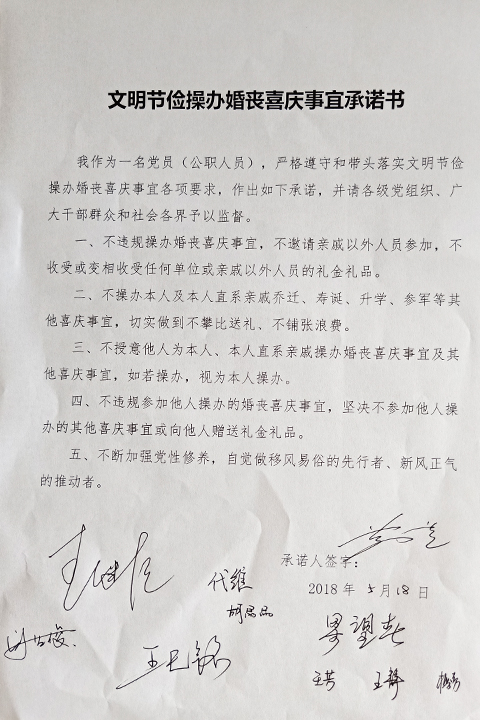 文明节俭操办婚丧喜庆事宜承诺书
我作为一名党员（公职人员），严格遵守和带头落实文明节俭
操办婚丧喜庆事宜各项要求，作出如下承诺，并请各级党组织、广
大干部群众和社会各界予以监督。
一、不违规操办婚丧喜庆事宜，不邀请亲戚以外人员参加，不
收受或变相收受任何单位或亲戚以外人员的礼金礼品。
二、不操办本人及本人直系亲戚乔迁、寿诞、升学、参军等其
他喜庆事宜，切实做到不攀比送礼、不铺张浪费。
三、不授意他人为本人、本人直系亲戚操办婚丧喜庆事宜及其
他喜庆事宜，如若操办，视为本人操办。
四、不违规参加他人操办的婚丧喜庆事宜，坚决不参加他人操
办的其他喜庆事宜或向他人赠送礼金礼品。
五、不断加强党性修养，自觉做移风易俗的先行者、新风正气
的推动者。
承诺人签字：
2018 年 5 月 18 日
代维
王芳 王静